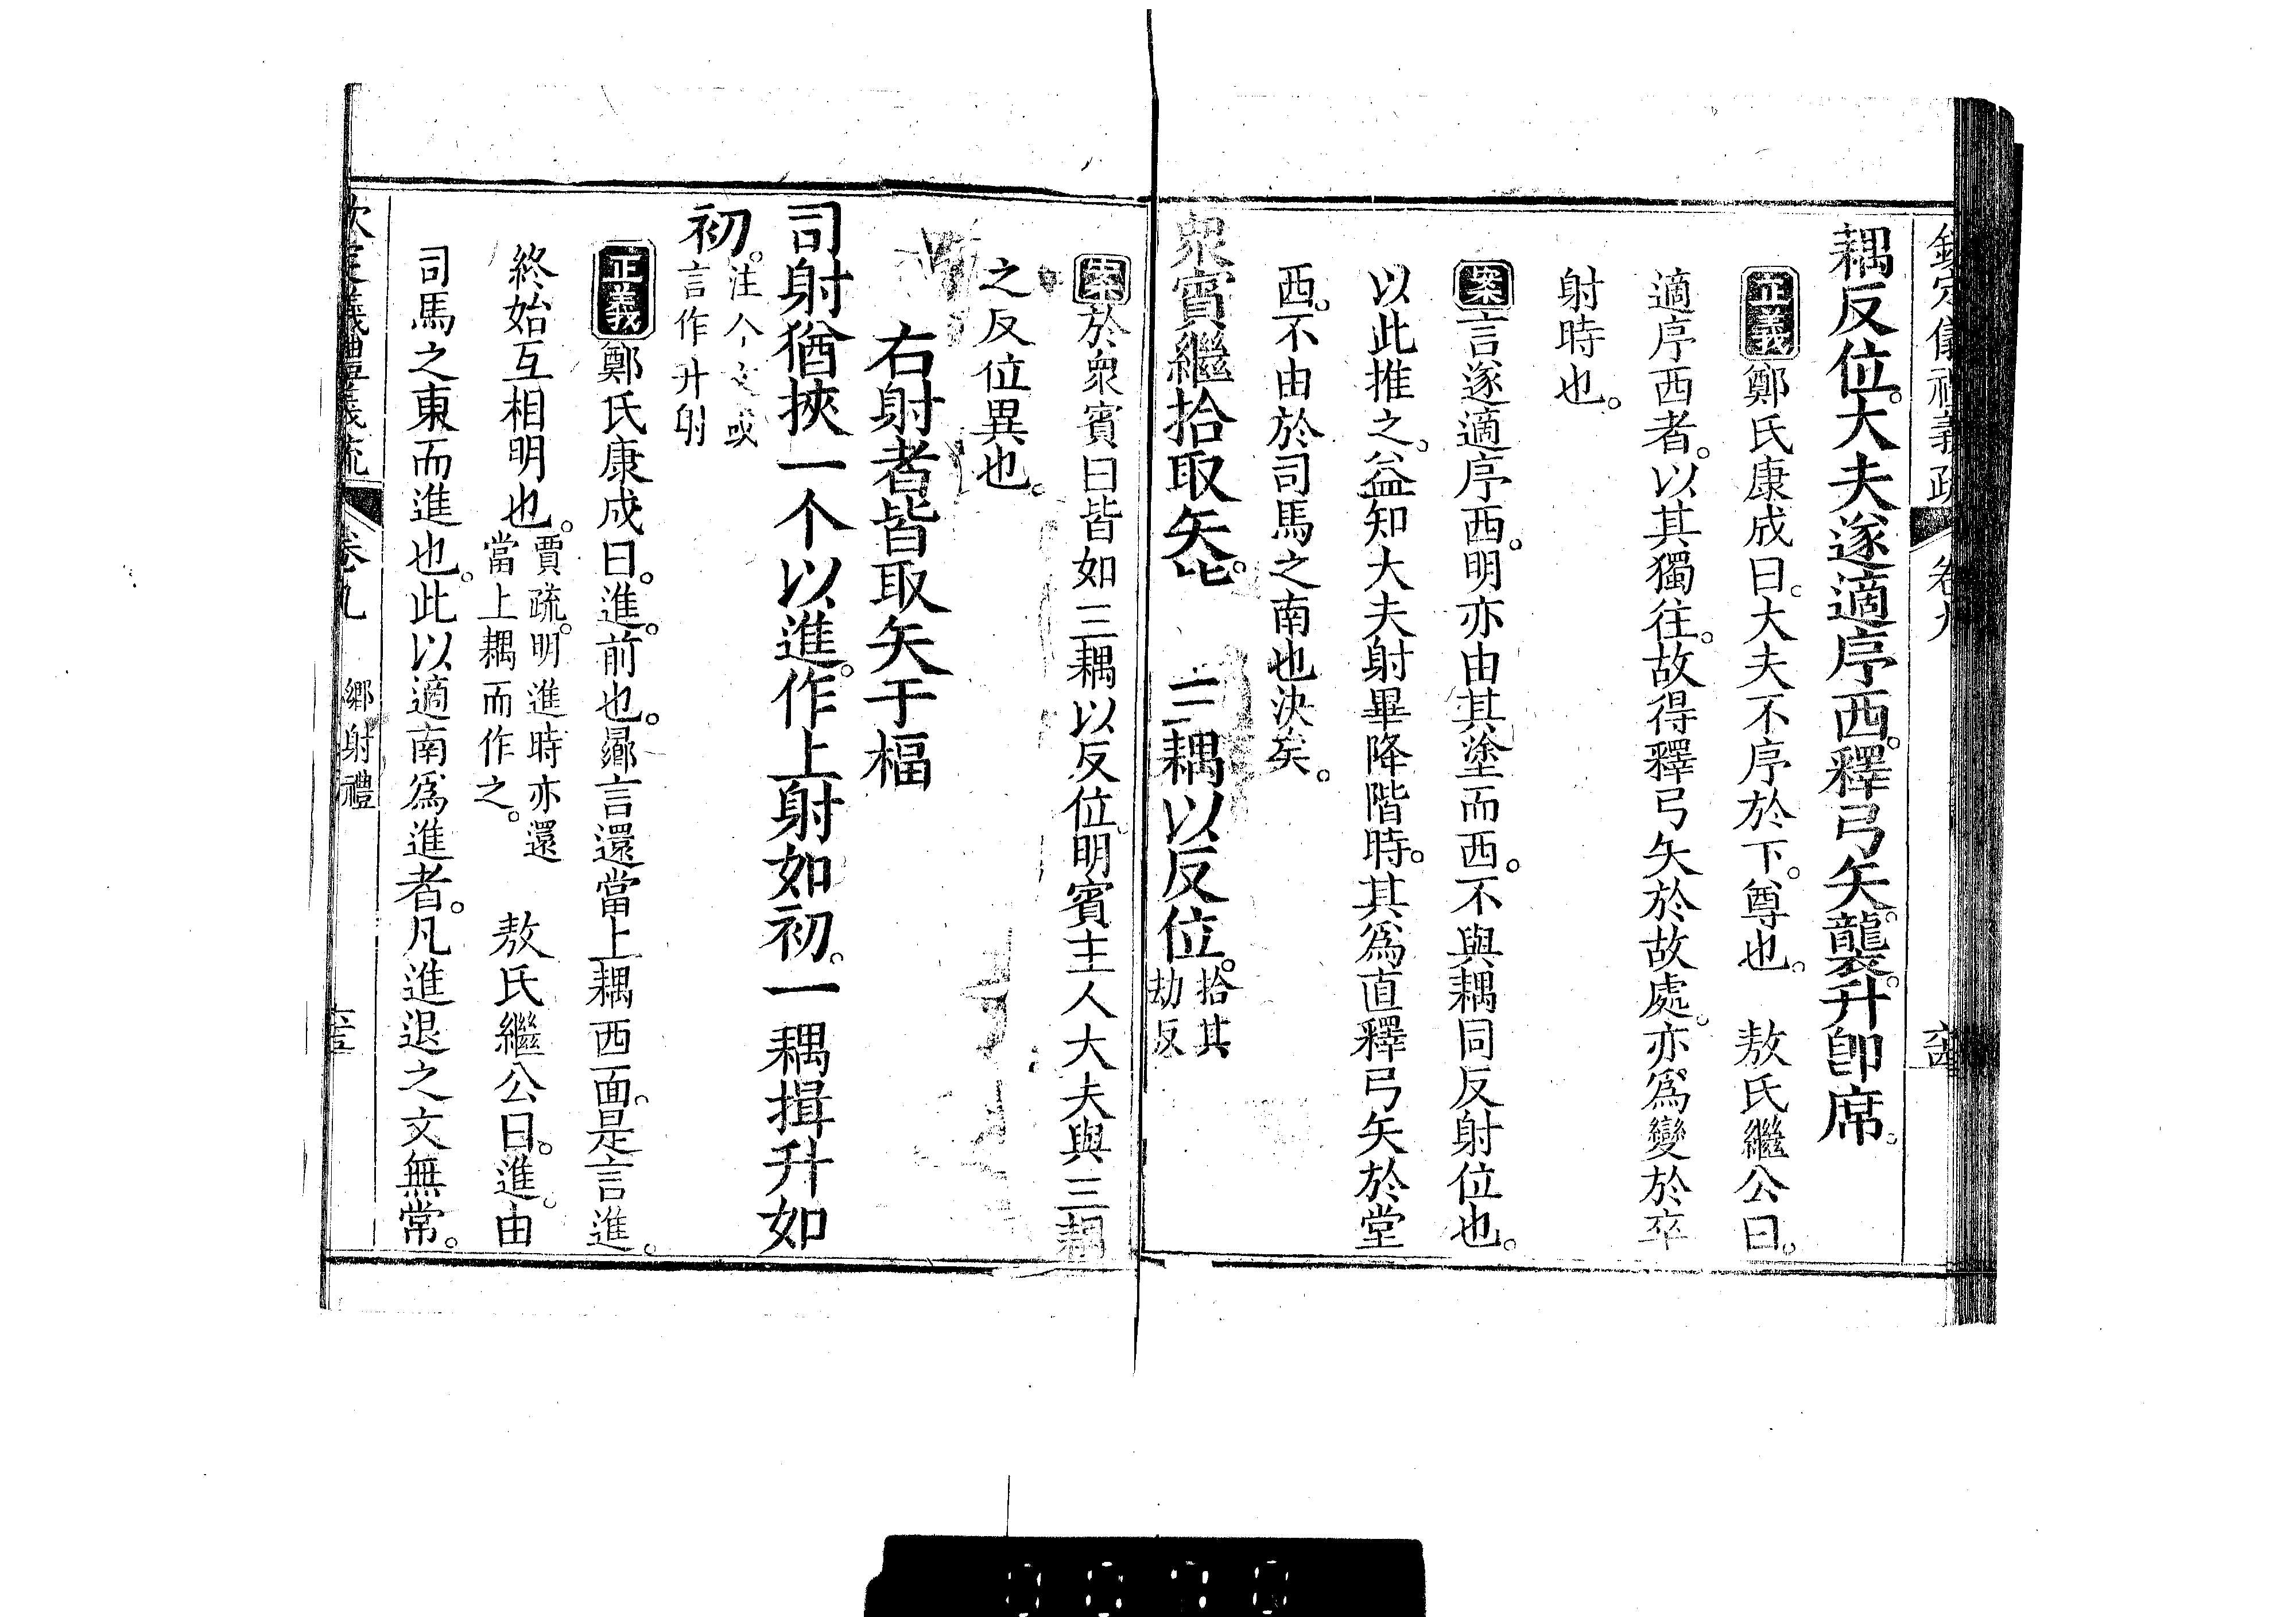 欽定儀禮義疏 卷九
耦反位。大夫遂適序西。釋弓矢。襲。升卽席。
正義鄭氏康成曰。大夫不序於下。尊也。 敖氏繼公曰。
適序西者。以其獨往。故得釋弓矢於故處。亦爲變於卒
射時也。
案言遂適序西。明亦由其塗而西。不與耦同反射位也。
以此推之。益知大夫射畢降階時。其爲直釋弓矢於堂
西。不由於司馬之南也決矣。
眾賓繼拾取矢。皆 三耦以反位。拾其
劫反
案於衆賓曰皆如三耦以反位。明賓主人大夫與三耦
之反位異也。
右射者皆取矢于楅
司射猶挾一个以進。作上射如初。一耦揖升如
初。注今文或
言作升射
正義鄭氏康成曰。進。前也。曏言還當上耦西面。是言進。
終始互相明也。賈疏。明進時亦還
當上耦而作之。 敖氏繼公曰。進。由
司馬之東而進也。此以適南爲進者。凡進退之文無常。
欽定義禮義疏 卷九 鄉射禮